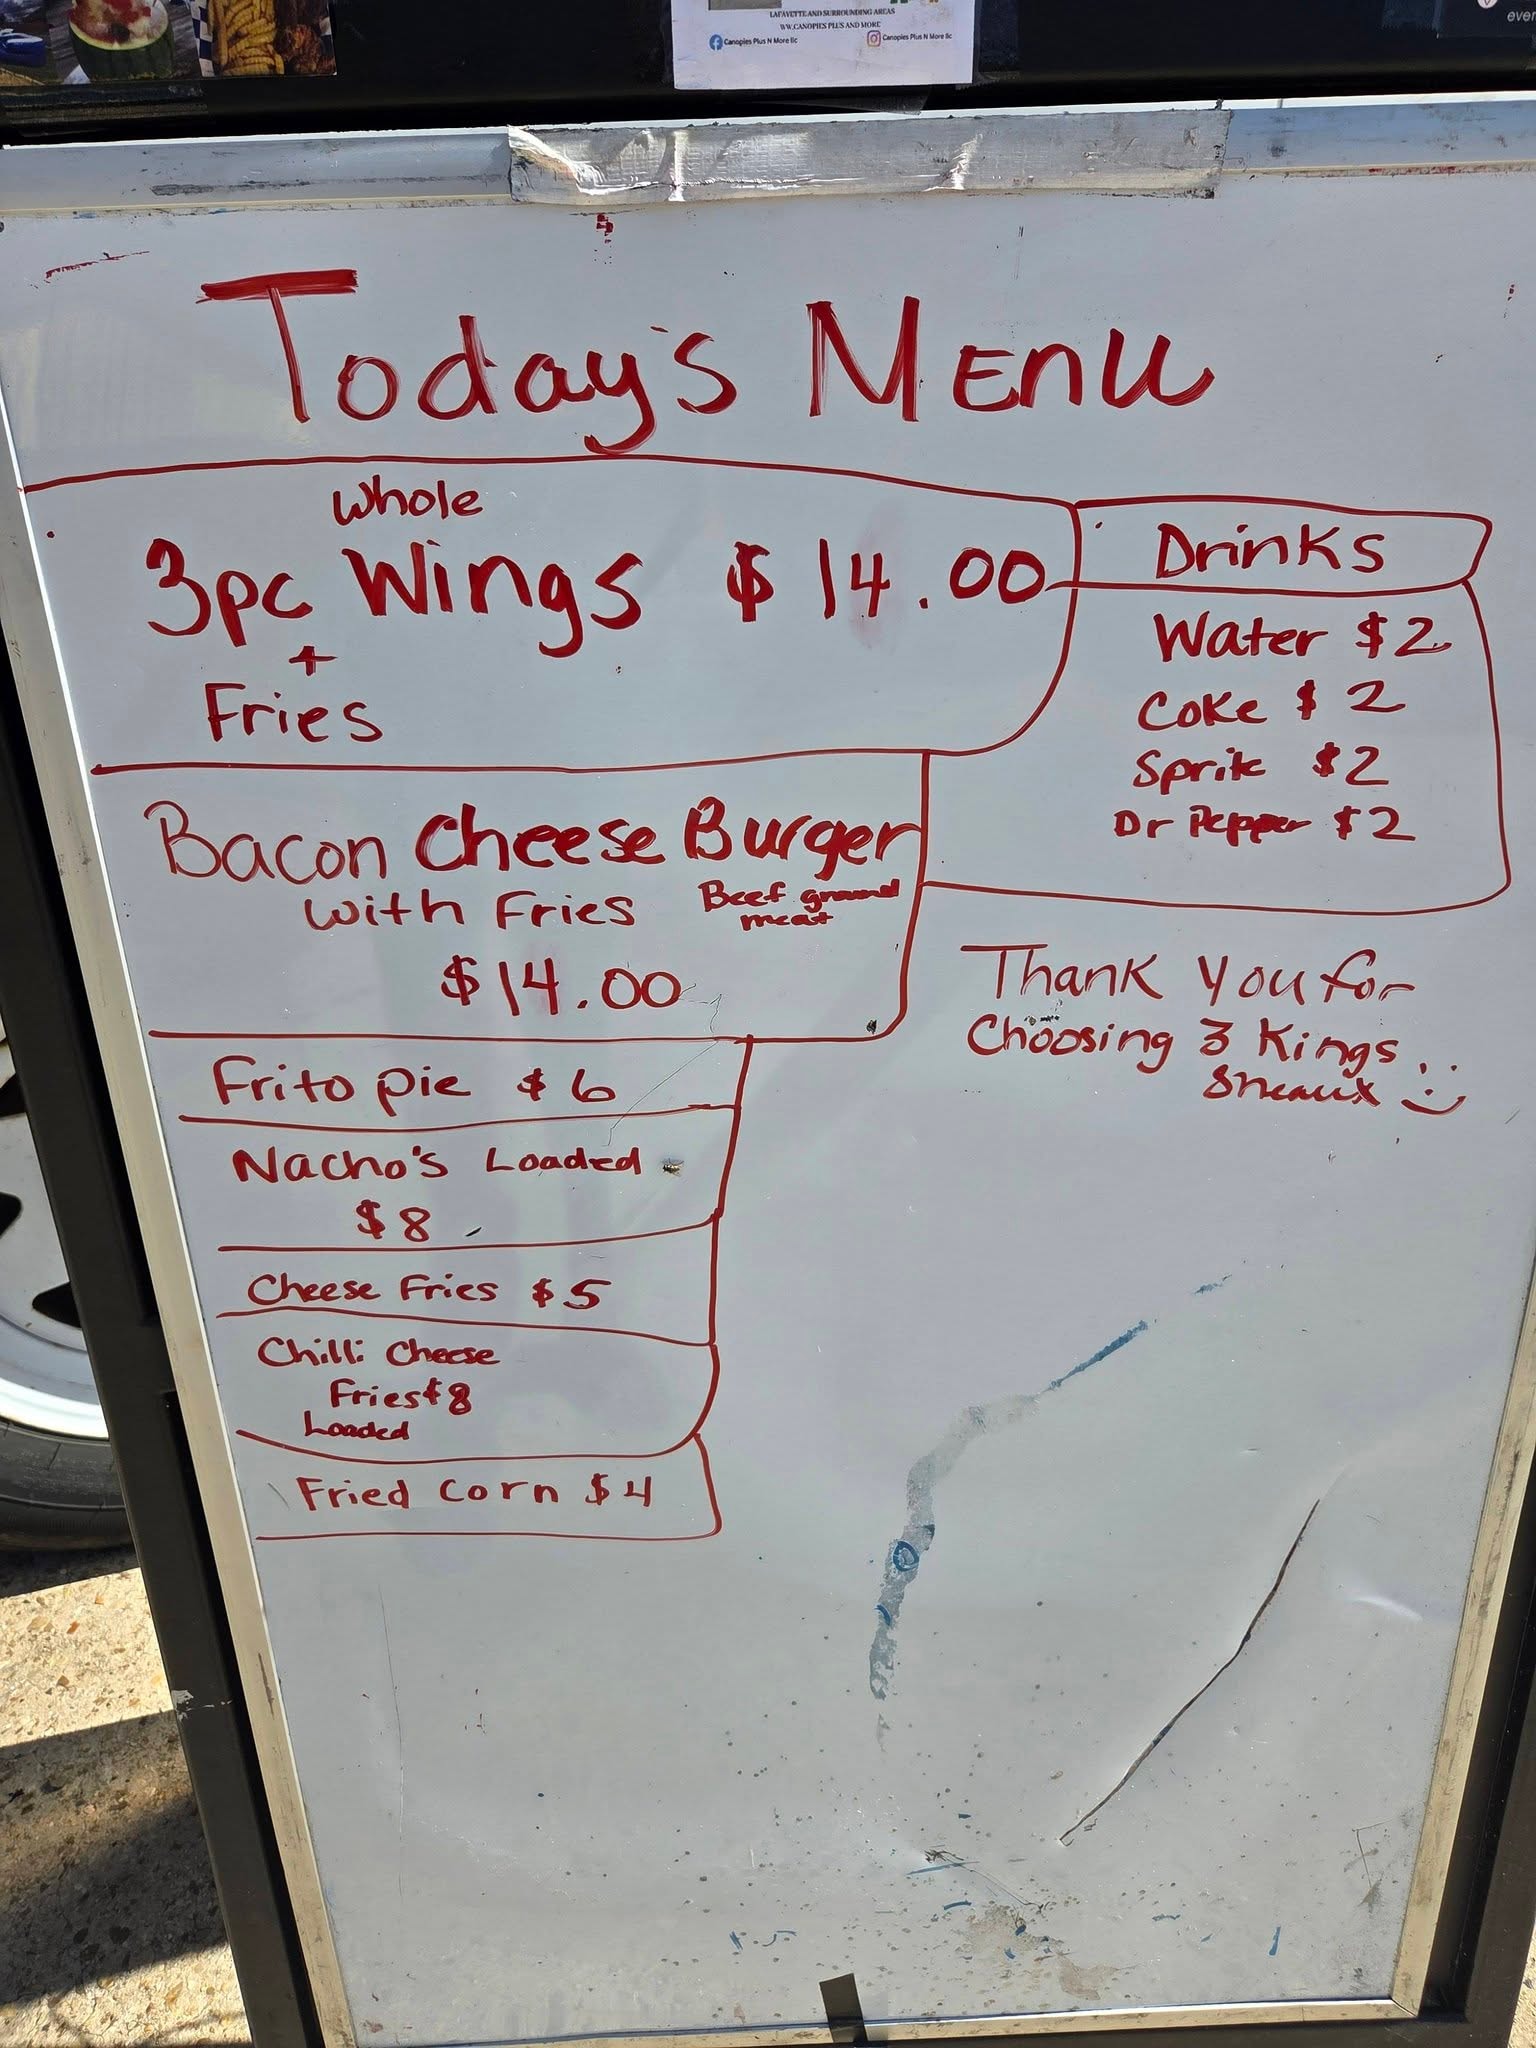 LAFAYETTE AND SURROUNDING AREAS
WW.CANOPIES PLUS AND MORE
Canopies Plus N More llc
Canopies Plus N More llc
Today's Menu
Whole
3pc Wings $14.00
+
Fries
Bacon Cheese Burger
with Fries
Beef ground
meat
$14.00
Frito pie $6
Nacho's Loaded
$8
Cheese Fries $5
Chilli Cheese
Fries $8
Loaded
Fried Corn $4
Drinks
Water $2
Coke $2
Sprite $2
Dr Pepper $2
Thank You for
Choosing 3 Kings